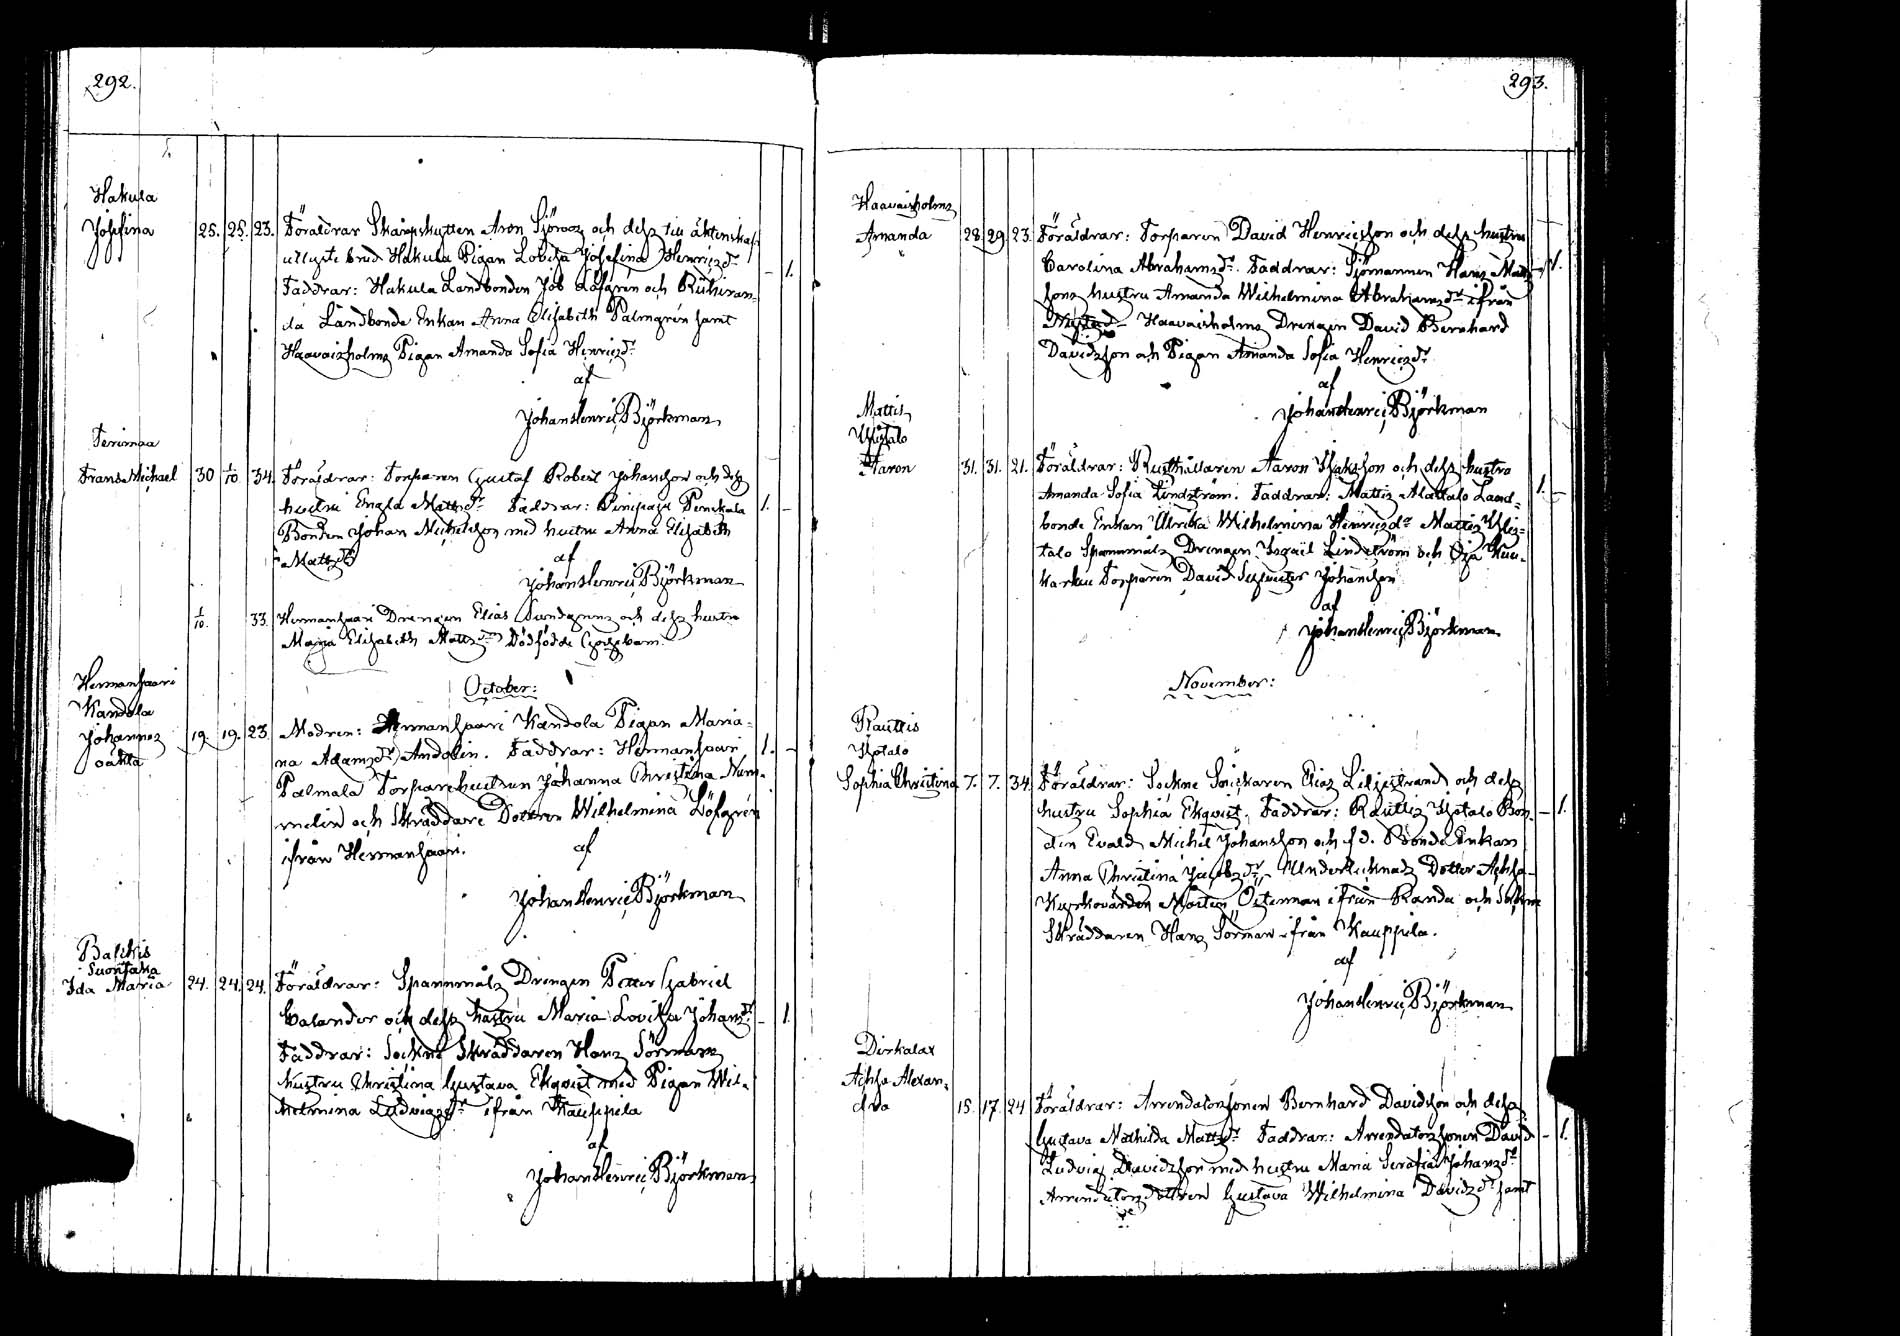 292.
Hakula
Josefina 25. 25. 23. Föräldrar Skarpskytten Aron Sjöroos och dess till äktenskap
utlyste brud Hakula Pigan Lovisa Josefina Henricsdr
Faddrar: Hakula Landbonden Job Löfgrén och
da Landbonde Enkan Anna Elisabeth Palmgrén samt
Haavaisholms Pigan Amanda Sofia Henricsdr
– 1.
af
Johan Henric Björkman
Terimaa
Frans Michael 30 1/10 34. Föräldrar: Torparen Gustaf Robert Johansson och dess
hustru Engla Mattsdr Faddrar: Pinipaju Penikala
Bonden Johan Michelsson med hustru Anna Elisabeth
Mattsdr
1. –
af
Johan Henric Björkman
1/10. 33. Hermansaari Drengen Elias Sundgrens och dess hustru
Maja Elisabeth Mattsdrs Dödfödde Gossebarn.
October:
Hermansaari
Kandola
Johannes 19 19. 23. Modren: Hermansaari Kandola Pigan Maria-
oäkta na Adamsdr Andelin. Faddrar: Hermansaari 1. –
Palmala Torparehustrun Johanna Christina Num-
melin och Skräddare Dottren Wilhelmina Löfgrén
ifrån Hermansaari.
af
Johan Henric Björkman
Balikis
Suontaka
Ida Maria 24. 24. 24. Föräldrar: Spannmåls Drengen Petter Gabriel
Calander och dess hustru Maria Lovisa Johansdr – 1.
Faddrar: Sockne Skräddaren Hans Sörmans
hustru Christina Gustava Ekqvist med Pigan Wil-
helmina Ludvigsdr ifrån Kauppila
af
Johan Henric Björkman
293.
Haavaisholms
Amanda 28. 29. 23. Föräldrar: Torparen David Henricsson och dess hustru
Carolina Abrahamsdr. Faddrar: Sjömannen Hans Matts- – 1.
sons hustru Amanda Wilhelmina Abrahamsdr ifrån
Nystad – Haavaisholms Drengen David Bernhard
Davidsson och Pigan Amanda Sofia Henricsdr
af
Johan Henric Björkman
Mattis
Ylistalo
Aaron 31. 31. 21. Föräldrar: Rusthållaren Aaron Isaksson och dess hustru
Amanda Sofia Lindström. Faddrar: Mattis Alattalo Land- 1. –
bonde Enkan Ulrika Wilhelmina Henricsdr Mattis Ylis-
talo Spannmåls Drengen Isgail Lindström och Oja Kuu-
karkuu Torparen David Johansson
af
Johan Henric Björkman
November:
Rauttis
Isotalo
Sophia Christina 7. 7. 34. Föräldrar: Sockne Snickaren Elias Liljestrand och dess
hustru Sophia Ekqvist. Faddrar: Rauttis Isotalo Bon- – 1.
den Evald Michel Johansson och f.d. Bonde Enkan
Anna Christina Jacobsdr, Undertecknads Dotter Achsa
Kyrkovärden Mårten Österman ifrån Randa och Sockne
Skräddaren Hans Sörman ifrån Kauppila.
af
Johan Henric Björkman
Dirkalax
Achsa Alexan-
dra 15. 17. 24 Föräldrar: Arrendatorssonen Bernhard Davidsson och dess
Gustava Mathilda Mattsdr Faddrar: Arrendatorssonen David – 1.
Ludvig Davidsson med hustru Maria Serafia Johansdr
Arrendatorsdottren Gustava Wilhelmina Davidsdr samt